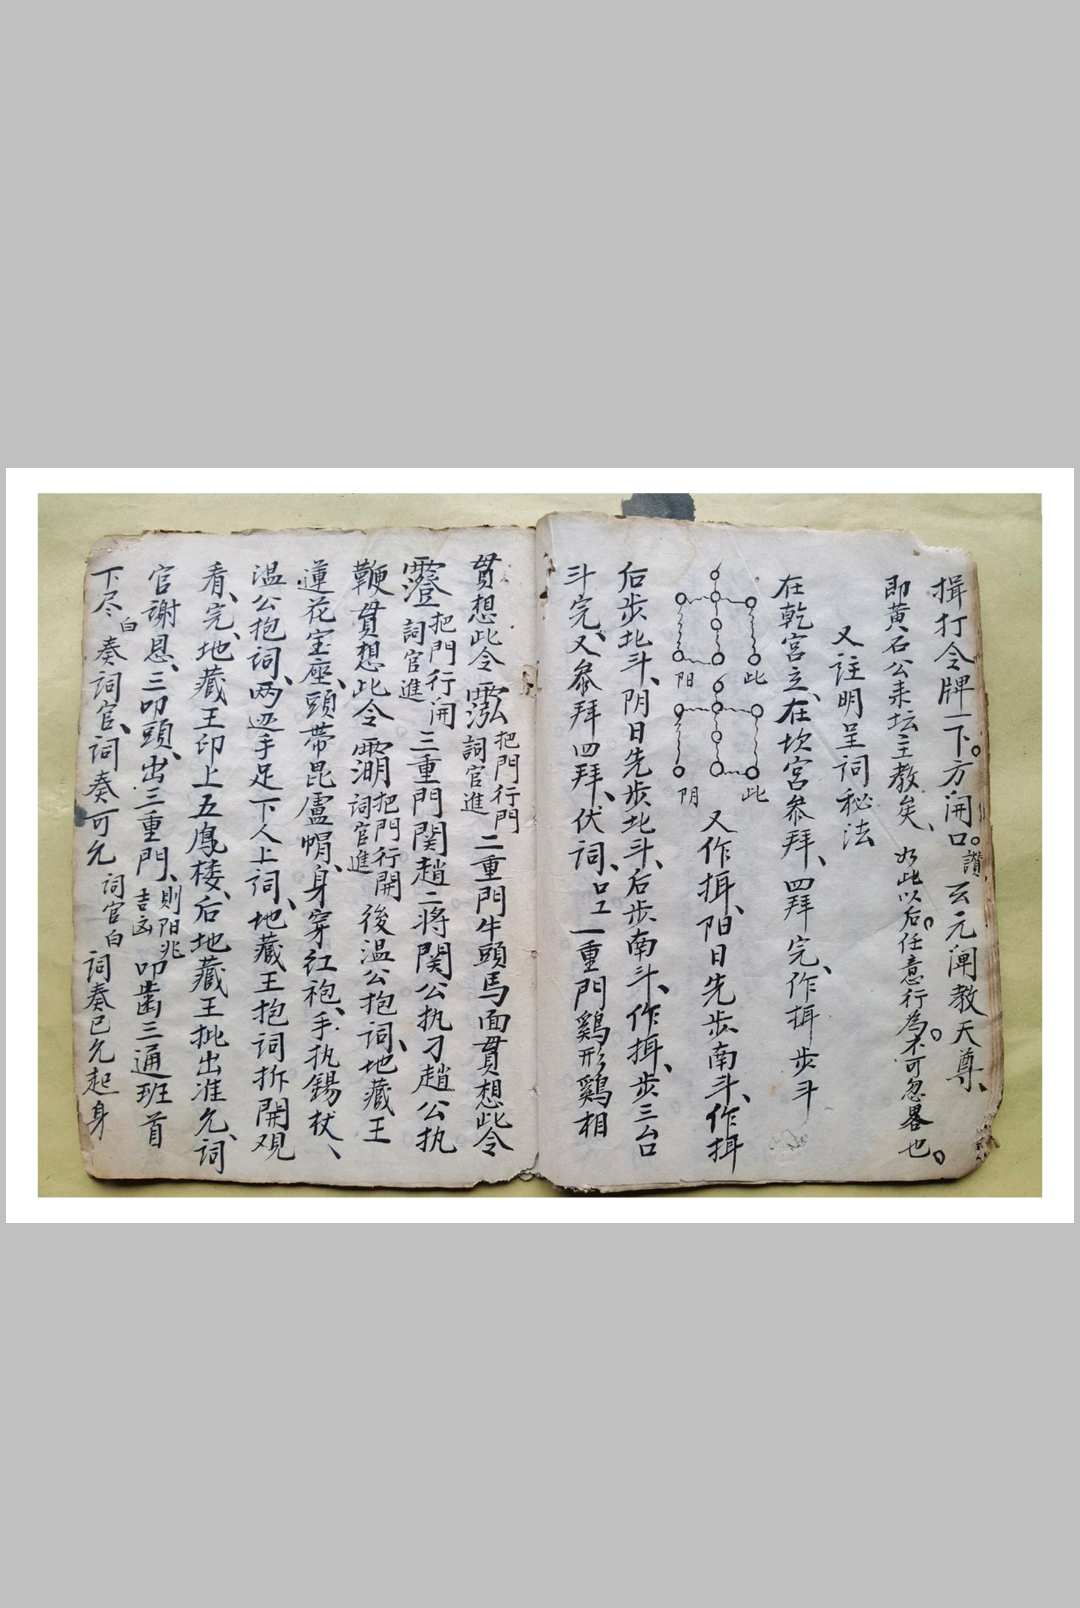 揖打令牌一下。方開口。讚云元闡教天尊、
即黄石公来坛主教矣、如此以后。任意行為。不可忽畧也。
又註明呈词秘法
在乾宮立、在坎宮參拜、四拜完、作揖步斗
阳 此
阴 此
又作揖、阳日先步南斗、作揖
后步北斗、阴日先步北斗、后步南斗、作揖、步三台
斗完、又參拜四拜、伏词、一重門鷄形鷄相
貫想此令 把門行門 詞官進 二重門牛頭馬面貫想此令
把門行開 詞官進 三重門関趙二将関公执刁趙公执
鞭貫想此令 把門行開 詞官進 後温公抱词、地藏王
蓮花宝座、頭带昆盧帽、身穿红袍、手执錫杖、
温公抱词、两边手足下人上词、地藏王抱词拆開观
看、完、地藏王印上五鳳楼、后地藏王批出准允、词
官谢恩、三叩頭、出三重門、則阳兆吉凶 叩齒三通班首
下尽白 奏词官、词奏可允 词官白 词奏已允起身